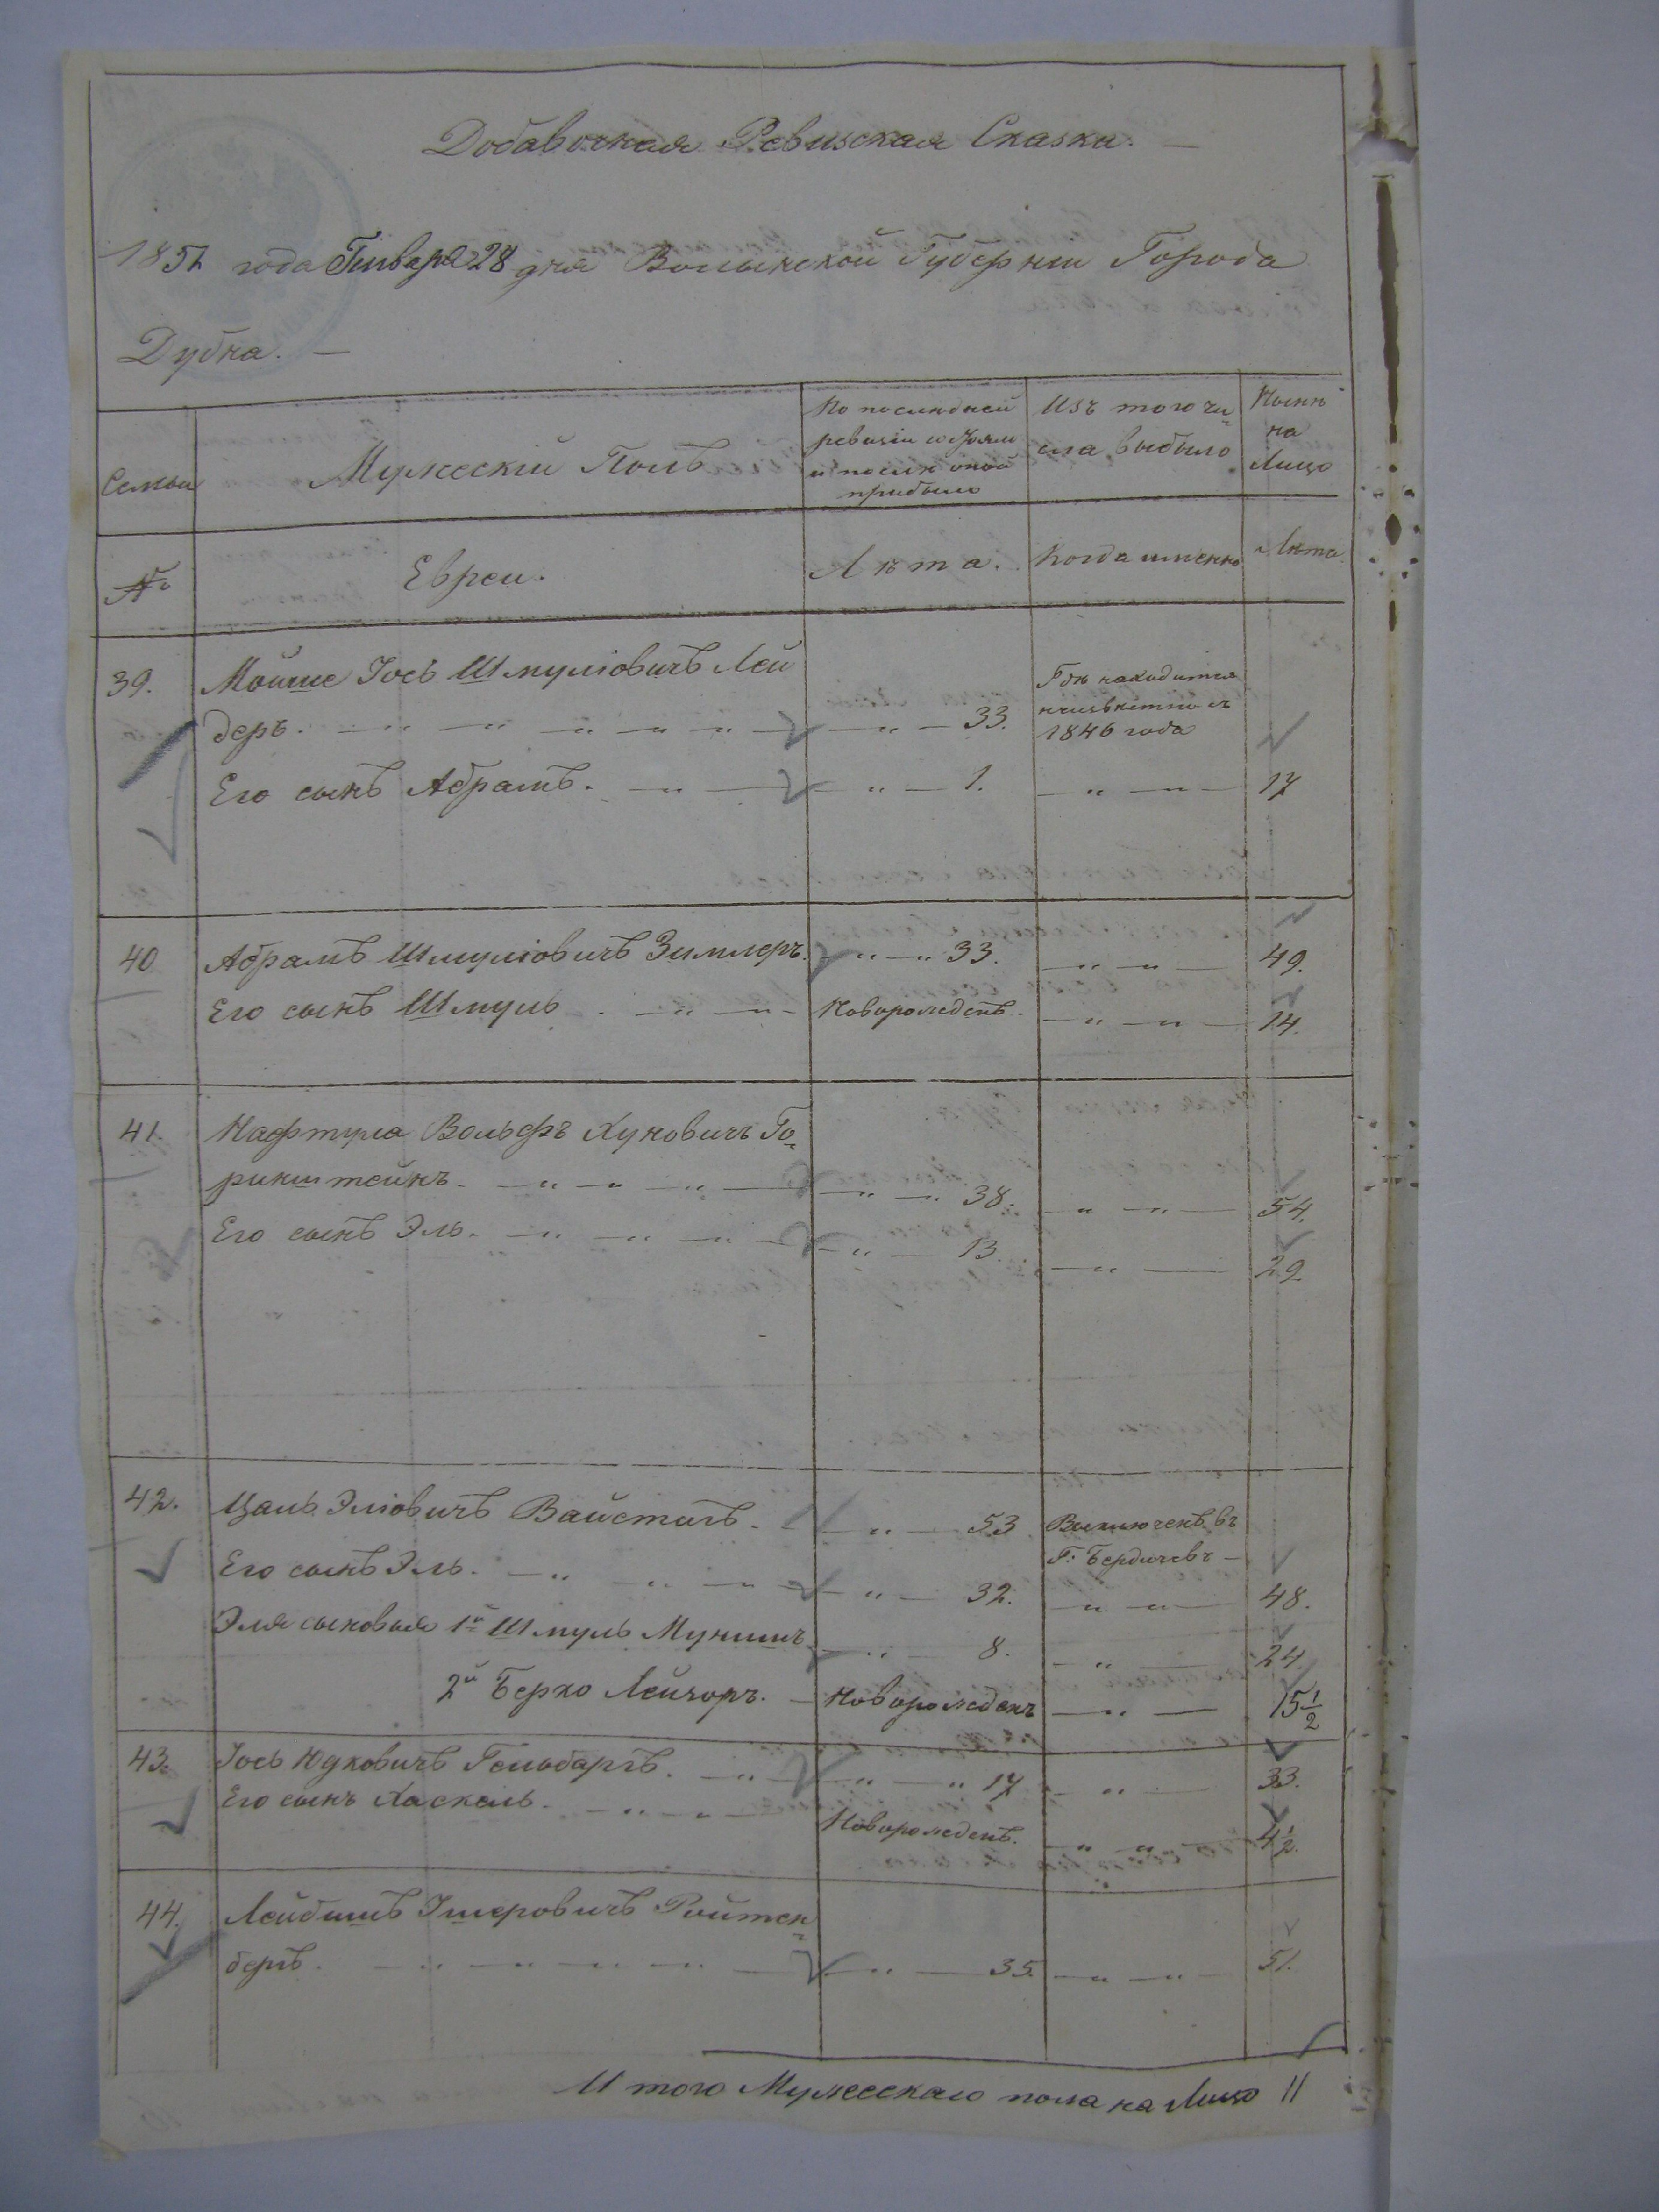 Добавочная Ревиская Сказка. —
1851 года Генваря 28 дня Волынской Губерніи Города
Дубна. —
Семьи
Мужескій Полъ
По последней ревизіи состояло и после оной прибыло
Изъ того числа выбыло
Ныне на Лицо
№
Евреи.
Лѣта.
Когда именно
Лѣта
39. Мойше Іось Шмуліовичъ Лей
деръ. — " — " — " — " — 33. Где находится неизвѣстно съ 1846 года
Его сынъ Абрамъ. — " — " — 1. — " — " — 17
40 Абрамъ Шмуліовичъ Зиммеръ. " — " 33. — " — " — 49.
Его сынъ Шмуль — " — " — Новорожденъ. — " — " — 14.
41. Нафтула Вольфъ Хуновичъ Го
ринштейнъ. — " — " — " — " — " 38. — " — " — 54.
Его сынъ Эль. — " — " — " — " — 13. — " — 29.
42. Цаль Эліовичъ Вайстихъ. — " — 53 Выключенъ въ
Г. Бердичевъ —
Его сынъ Эль. — " — " — " — " — 32. — " — " — 48.
Эля сыновья 1й Шмуль Мунишъ — " — 8. — " — 24.
2й Берко Лейзоръ. — Новорожденъ — " — 15½
43. Іось Юдковичъ Гольдбаргъ. — " — " — " 17 — " — 33.
Его сынъ Хаскель. — " — " — Новорожденъ. — " — " — 4½
44. Лейбишъ Ушеровичъ Ройтен
бергъ. — " — " — " — " — " — 35. — " — " — 51.
Итого Мужескаго пола на Лицо 11